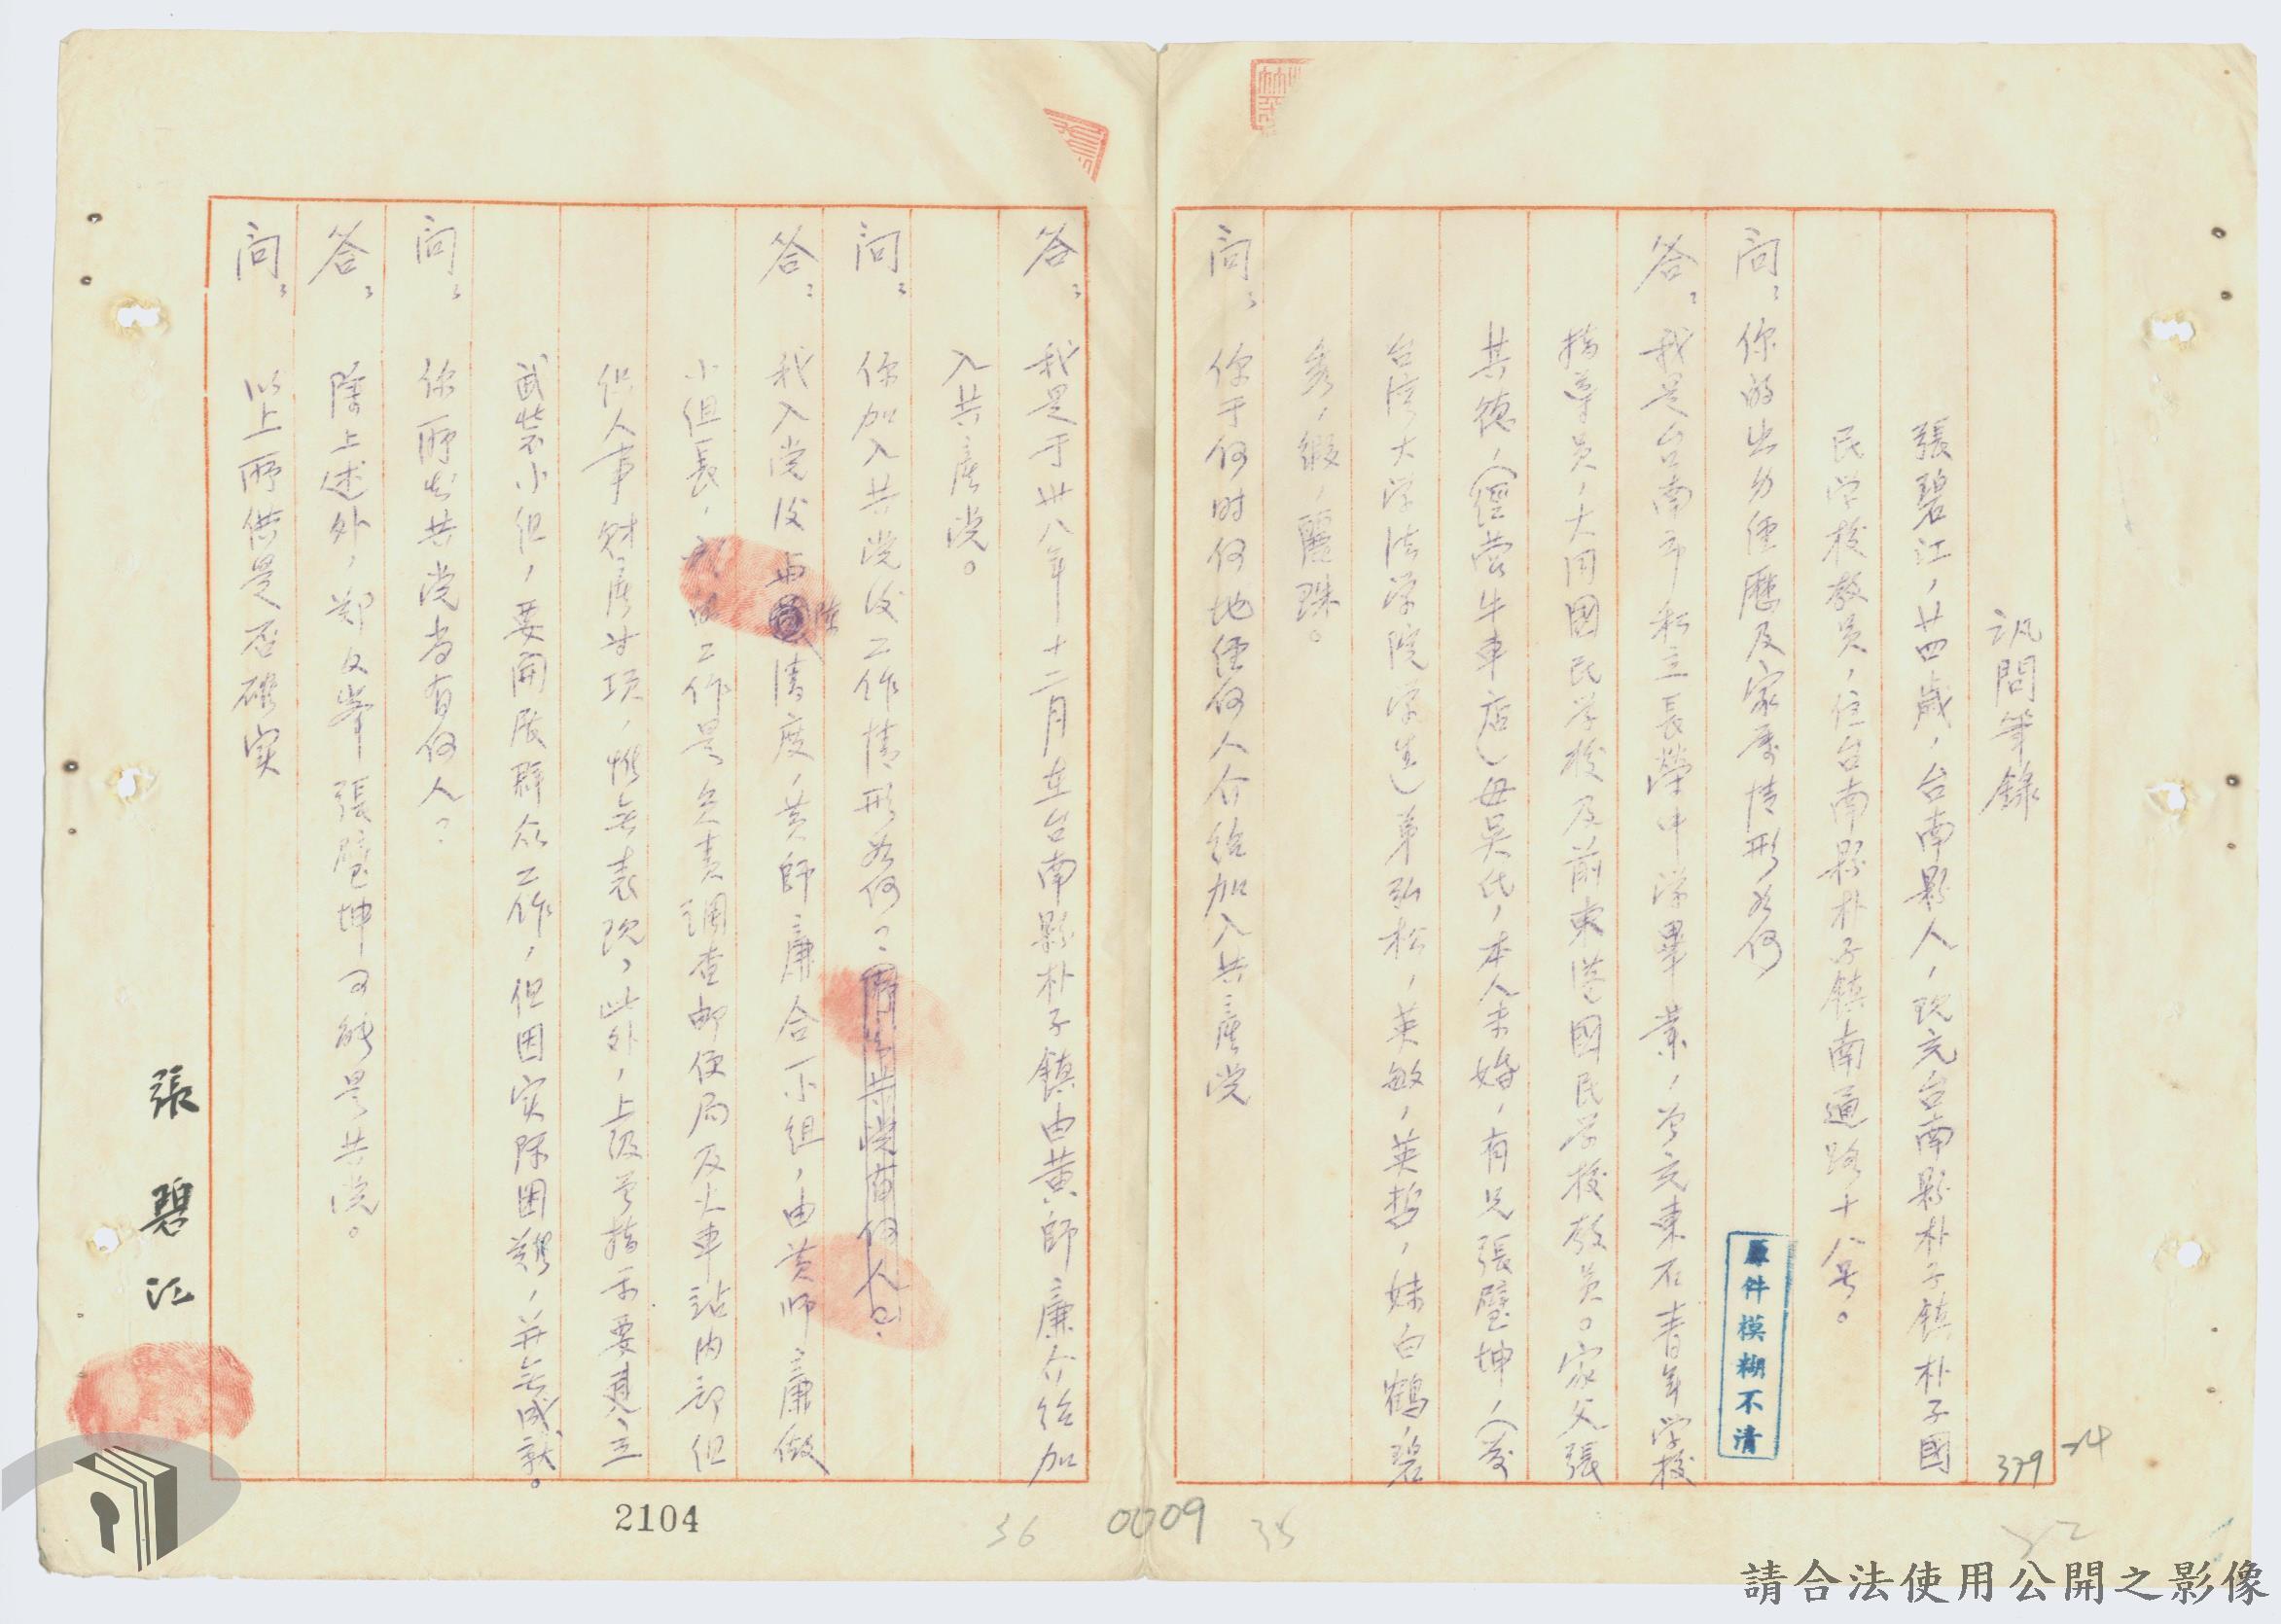 訊問筆錄
張碧江,廿四歲,台南縣人,現充台南縣朴子鎮朴子國
民学校教員,住台南縣朴子鎮南通路十八号。
問:你的出身經歷及家庭情形如何
答:我是台南市私立長榮中学畢業,曾充東石青年学校
指導員,大同國民学校及前東港國民学校教員。家父張
其德,(經営牛車店)母吳氏,本人未婚,有兄張璧坤,(前
台湾大学法学院学生)弟弘松,英敏,英哲,妹白鶴,碧
秀,緞,麗珠。
問:你于何时何地經何人介紹加入共產党
答:我是于卅八年十二月在台南縣朴子鎮由黄師廉介紹加
入共產党。
問:你加入共党後工作情形如何?
答:我入党後與陸清度,黄師廉合一小組,由黄師廉做
小組長,我的工作是負責調查郵便局及火車站内部組
織人事財産等項,惟無表現,此外,上級曾指示要建立
武裝小組,要開展群众工作,但因实際困難,并無成就。
問:你所知共党尚有何人?
答:除上述外,鄭文峯張璧坤可能是共党。
問:以上所供是否確实
張碧江
原件模糊不清
379
24
2104
36
0009
35
請合法使用公開之影像